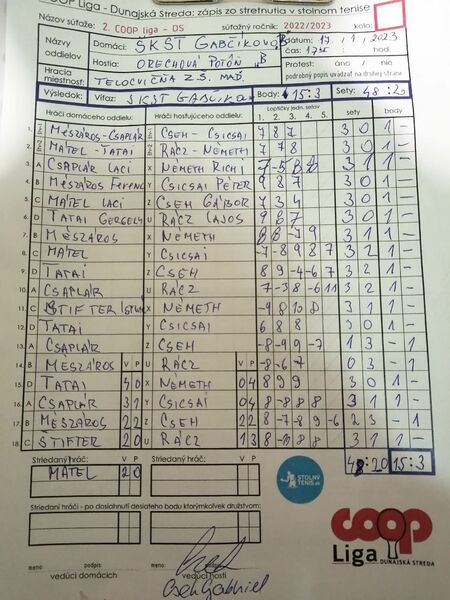 COOP Liga - Dunajská Streda: zápis zo stretnutia v stolnom tenise
Názov súťaže: 2. COOP liga - DS súťažný ročník: 2022/2023 kolo:
Názvy oddielov Domáci: SKŠT GABČÍKOVO "B" dátum: 17/1/2023
Hostia: ORECHOVÁ POTÔŇ "B" čas:
Hracia miestnosť: TELOCVIČŇA Z.Š. MAĎ. Protest: áno / nie
podrobný popis uvádzať na druhej strane
Výsledok: Víťaz: SKŠT GABČÍKOVO Body: 15:3 Sety: 48:20
Hráči domáceho oddielu: Hráči hosťujúceho oddielu: Loptičky jedn. setov sety body
1. 2. 3. 4. 5.
1. MÉSZÁROS-CSAPLÁR CSEH-CSICSAI 7 8 7 3 0 1 -
2. MATEL-TATAI RÁCZ-NÉMETH 7 7 8 3 0 1 -
3. A CSAPLÁR LACI X NÉMETH RICHI 7 -5 8 8 3 1 1 -
4. B MÉSZÁROS FERENC Y CSICSAI PÉTER 9 8 7 3 0 1 -
5. C MATEL LACI Z CSEH GÁBOR 7 3 4 3 0 1 -
6. D TATAI GERGELY U RÁCZ LAJOS 9 6 7 3 0 1 -
7. B MÉSZÁROS X NÉMETH 8 8 -7 9 3 1 1 -
8. C MATEL Y CSICSAI -7 -8 9 8 7 3 2 1 -
9. D TATAI Z CSEH 8 9 -4 -6 7 3 2 1 -
10. A CSAPLÁR U RÁCZ 7 -3 8 -6 11 3 2 1 -
11. C STIFTER X NÉMETH -9 8 10 8 3 1 1 -
12. D TATAI Y CSICSAI 6 8 8 3 0 1 -
13. A CSAPLÁR Z CSEH -8 -9 9 -7 1 3 - 1
14. B MÉSZÁROS V P U RÁCZ V P -8 -6 7 0 3 - 1
15. D TATAI 4 0 X NÉMETH 0 4 8 9 9 3 0 1 -
16. A CSAPLÁR 3 1 Y CSICSAI 0 4 8 -8 8 8 3 1 1 -
17. B MÉSZÁROS 2 2 Z CSEH 2 2 8 -7 -8 9 -6 2 3 - 1
18. C ŠTIFTER 2 0 U RÁCZ 1 3 8 -10 8 8 3 1 1 -
Striedaný hráč: V P Striedaný hráč: V P 48:20 15:3
MATEL 2 0
STOLNÝ
TENIS
Striedaní hráči - po dosiahnutí desiateho bodu ktorýmkoľvek družstvom:
coop
Liga DUNAJSKÁ STREDA
meno: podpis meno: podpis
vedúci domácich vedúci hostí
Cseh Gabriel